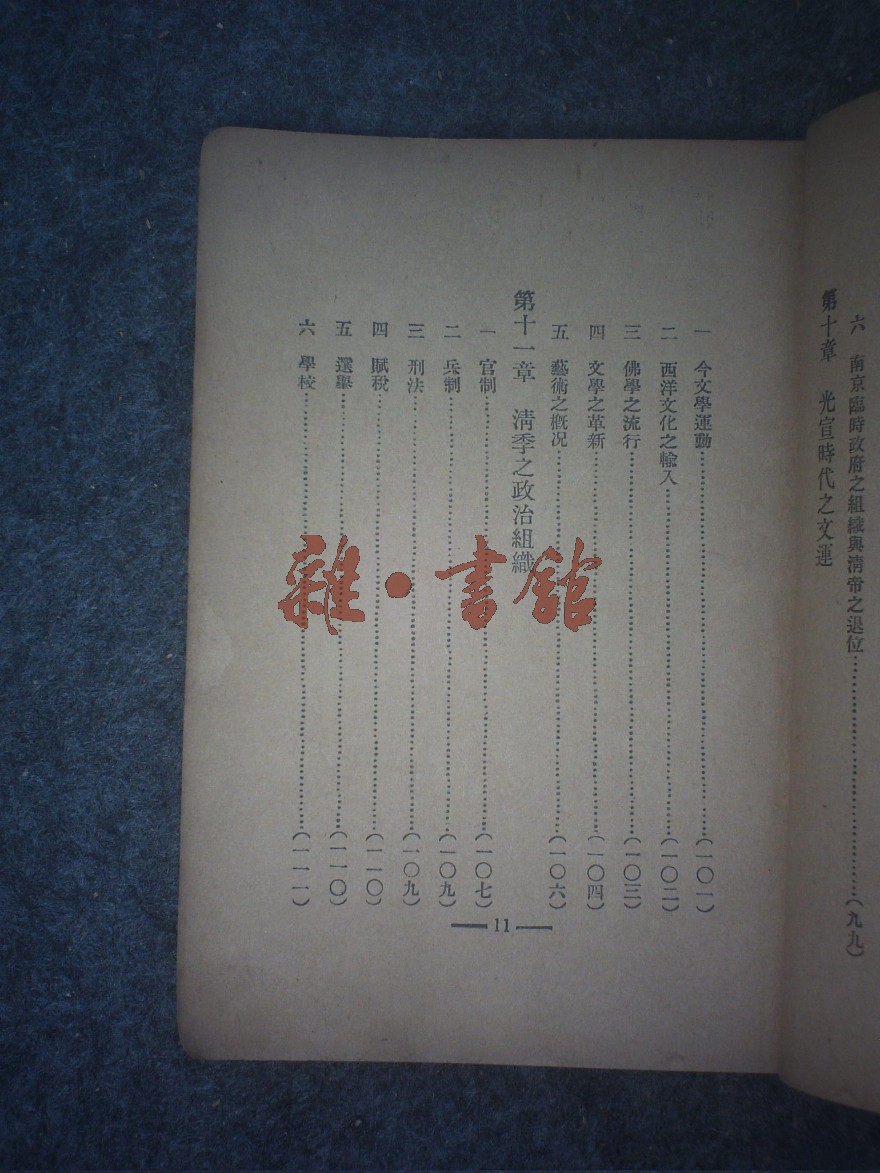 六 南京臨時政府之組織與清帝之退位……(九九)
第十章 光宣時代之文運
一 今文學運動……(一〇一)
二 西洋文化之輸入……(一〇二)
三 佛學之流行……(一〇三)
四 文學之革新……(一〇四)
五 藝術之概況……(一〇六)
第十一章 清季之政治組織
一 官制……(一〇七)
二 兵制……(一〇九)
三 刑法……(一〇九)
四 賦稅……(一一〇)
五 選舉……(一一〇)
六 學校……(一一一)
11
雜·書館